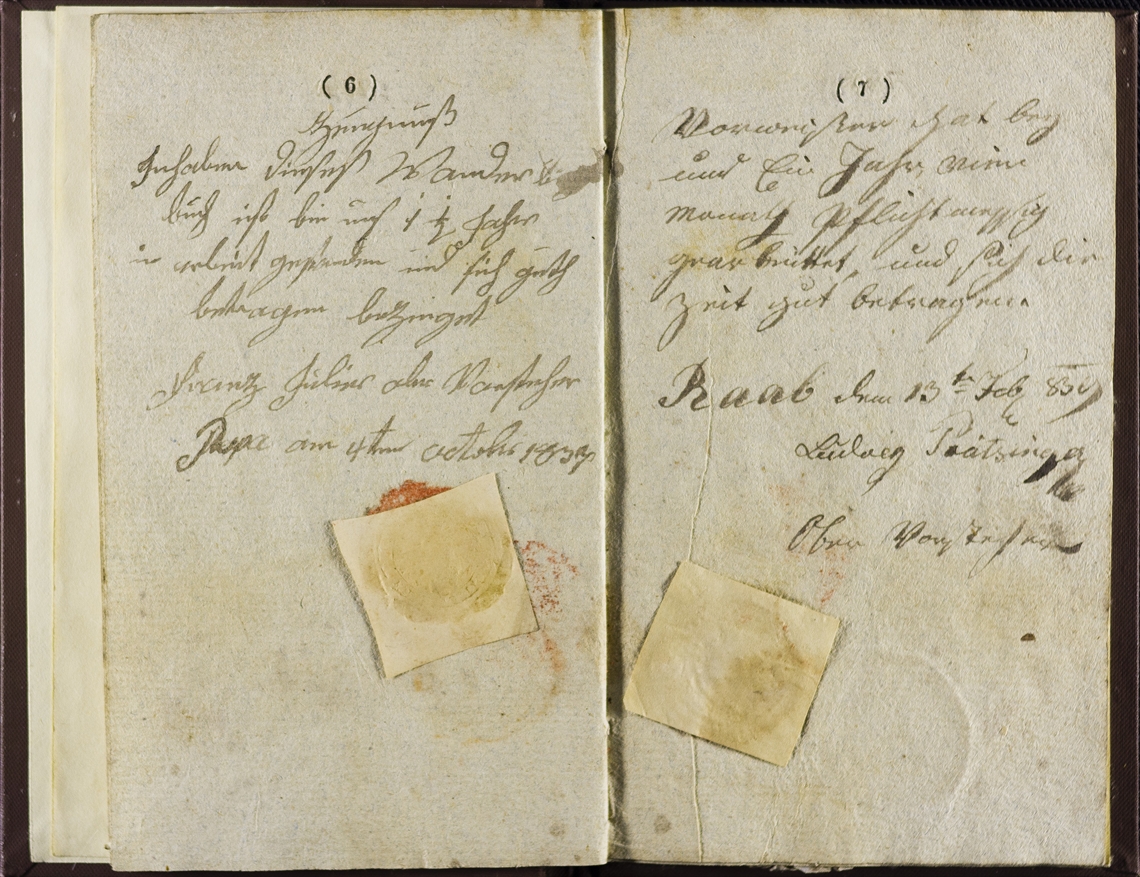 ( 6 )
Zeugnuß
Inhaber dieses Wander
buch ist bei uns 1 ½ Jahr
in arbeit gestanden und sich guth
betragen bezeuget
Frantz ober Vorsteher
Papa am 4ten octobr 1837
( 7 )
Vorweiser hat bey
uns Ein Jahr, vier
Monath pflichtmessig
gearbeittet, und sich die
Zeit gut betragen.
Raab dem 13te Feb 839
Ludwig
Ober Vorsteher